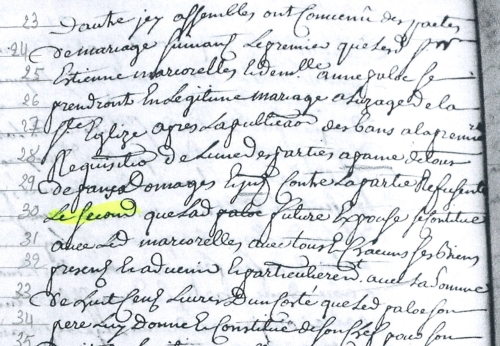 23 d'autre jcy assembles ont convenu des pactes
24 de mariage suivans Le premier que Led Sr
25 Estienne marcorelles et demlle anne paloc se
26 prendront En Legitime mariage a Luzage de la
27 ste Eglize apres La publicaõ des bans a la premiere
28 Requisitiõ de Lune des parties a paine de tous
29 despans domages contre La partie Refusente
30 Le Second que Lad paloc future Expouse se constitue
31 avec Led marcorelles avec tous Et chacuns ses biens
32 presens Et advenir Et particulierent avec La somme
33 de huit cens Livres d'un costé que Led paloc son
34 pere Luy donne Et Constitue de son chef pour son
35